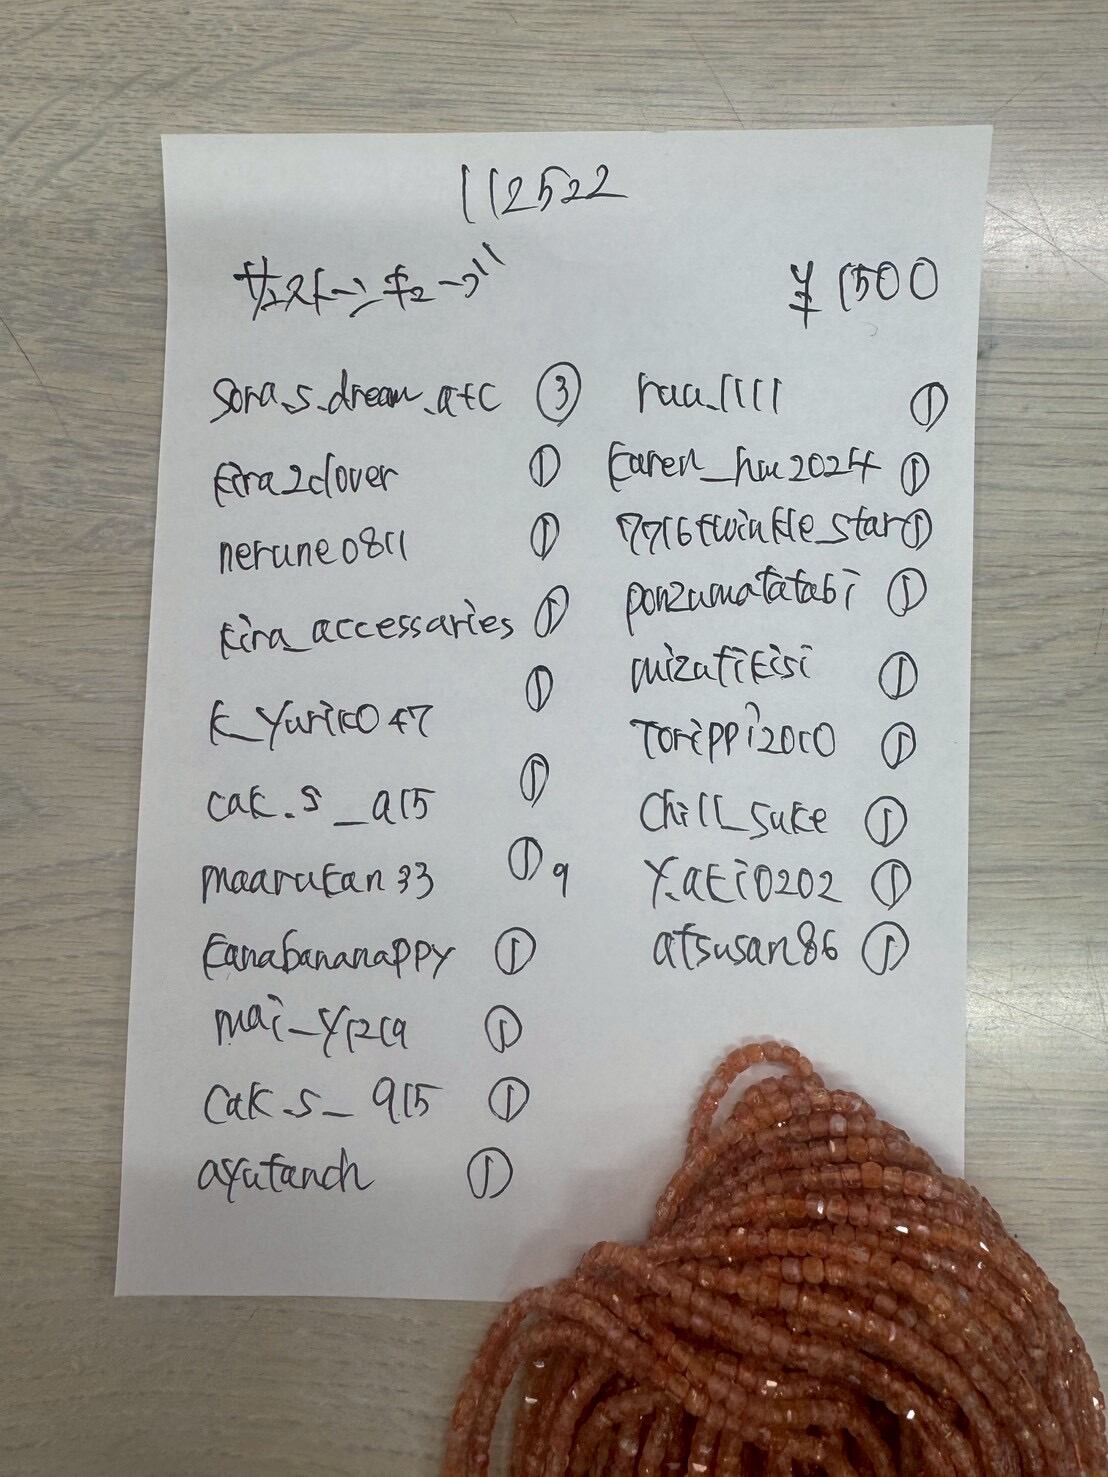 112522
サンストーンキューブ
¥1500
sora.s.dream.atc ③
kira2clover ①
nerune0811 ①
kira_accessaries ①
k_yuriko47 ①
cak.s_a15 ①
maarukan33 ① 9
kanabananappy ①
mai_y1219 ①
cak.s_915 ①
ayutanch ①
raa.1111 ①
karen_hu2024 ①
7716twinkle_star ①
ponzumatatabi ①
mizutikisi ①
torippi2010 ①
chill_suke ①
y.aki0202 ①
atsusan86 ①